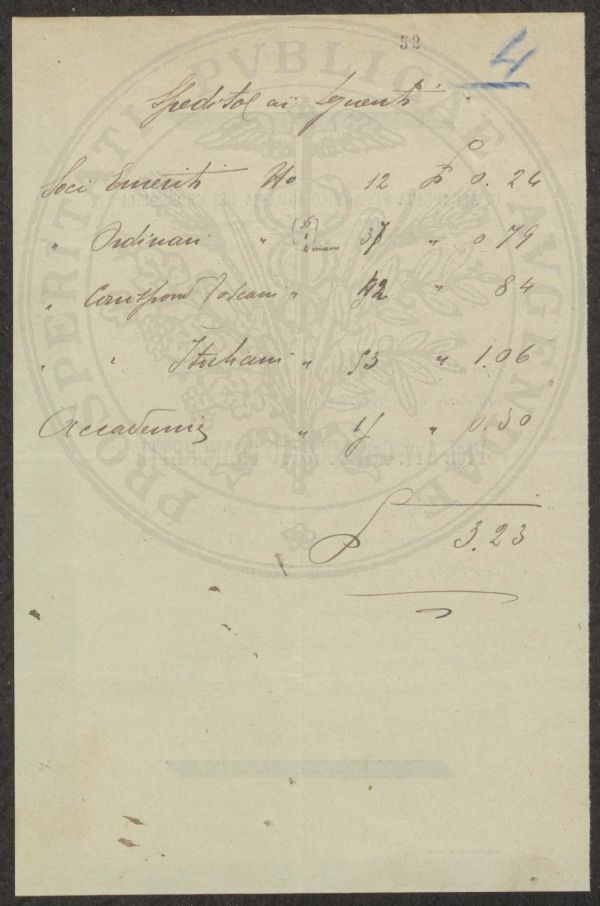 52
4
Spedito ai seguenti
Soci Emeriti No 12 £ 0.24
" Ordinari " 37 " 0.79
" Corrispond Toscani " 42 " 84
" " Italiani " 53 " 1.06
Accademie " " 0.30
£ 3.23
PROSPERITATI PVBLICAE AVGENDAE